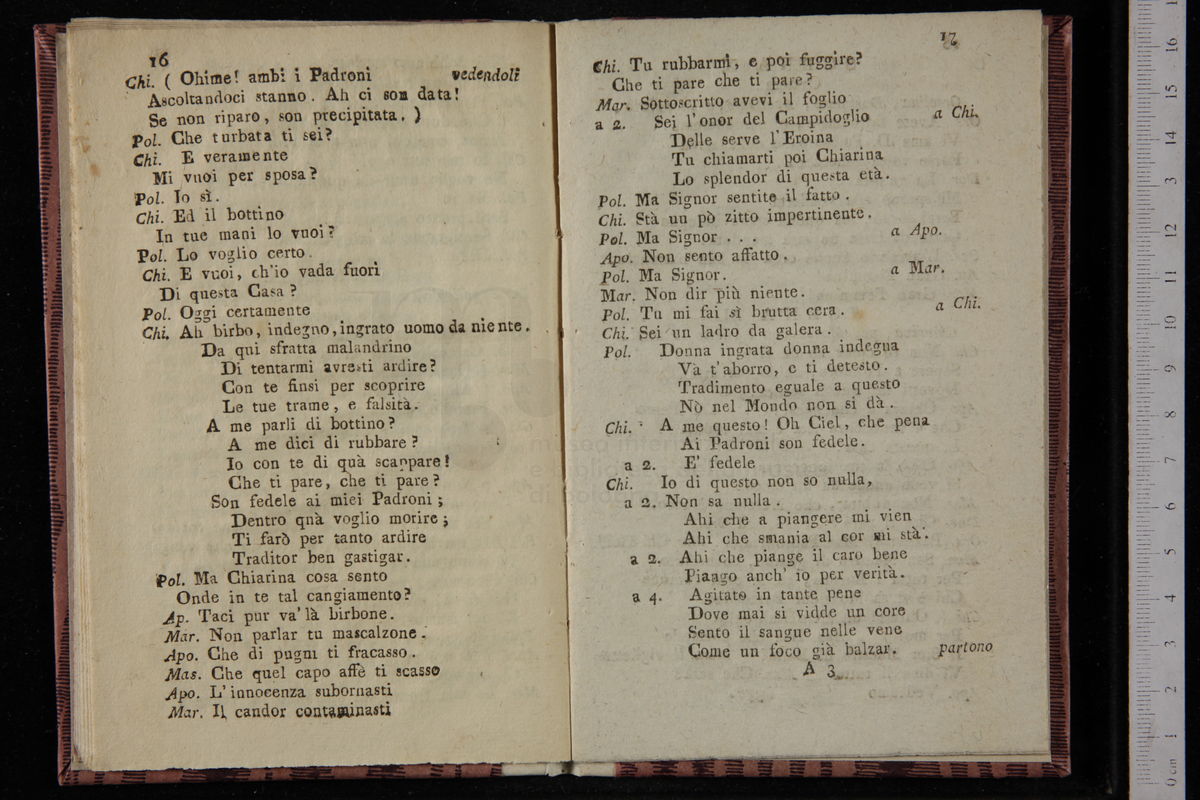 16
Chi. ( Ohime! ambi i Padroni vedendoli
Ascoltandoci stanno. Ah ci son data!
Se non riparo, son precipitata. )
Pol. Che turbata ti sei?
Chi. E veramente
Mi vuoi per sposa?
Pol. Io sì.
Chi. Ed il bottino
In tue mani lo vuoi?
Pol. Lo voglio certo.
Chi. E vuoi, ch'io vada fuori
Di questa Casa?
Pol. Oggi certamente
Chi. Ah birbo, indegno, ingrato uomo da niente.
Da qui sfratta malandrino
Di tentarmi avresti ardire?
Con te finsi per scoprire
Le tue trame, e falsità.
A me parli di bottino?
A me dici di rubbare?
Io con te di quà scappare!
Che ti pare, che ti pare?
Son fedele ai miei Padroni;
Dentro quà voglio morire;
Ti farò per tanto ardire
Traditor ben gastigar.
Pol. Ma Chiarina cosa sento
Onde in te tal cangiamento?
Ap. Taci pur va' là birbone.
Mar. Non parlar tu mascalzone.
Apo. Che di pugni ti fracasso.
Mas. Che quel capo affè ti scasso
Apo. L' innocenza subornasti
Mar. Il candor contaminasti
17
Chi. Tu rubbarmi, e poi fuggire?
Che ti pare che ti pare?
Mar. Sottoscritto avevi il foglio
a 2. Sei l'onor del Campidoglio a Chi.
Delle serve l'Eroina
Tu chiamarti poi Chiarina
Lo splendor di questa età.
Pol. Ma Signor sentite il fatto.
Chi. Stà un pò zitto impertinente.
Pol. Ma Signor . . . a Apo.
Apo. Non sento affatto.
Pol. Ma Signor. a Mar.
Mar. Non dir più niente.
Pol. Tu mi fai sì brutta cera. a Chi.
Chi. Sei un ladro da galera.
Pol. Donna ingrata donna indegna
Va t'aborro, e ti detesto.
Tradimento eguale a questo
Nò nel Mondo non si dà.
Chi. A me questo! Oh Ciel, che pena
Ai Padroni son fedele.
a 2. E' fedele
Chi. Io di questo non so nulla,
a 2. Non sa nulla.
Ahi che a piangere mi vien
Ahi che smania al cor mi stà.
a 2. Ahi che piange il caro bene
Piaago anch' io per verità.
a 4. Agitato in tante pene
Dove mai si vidde un core
Sento il sangue nelle vene
Come un foco già balzar. partono
A 3